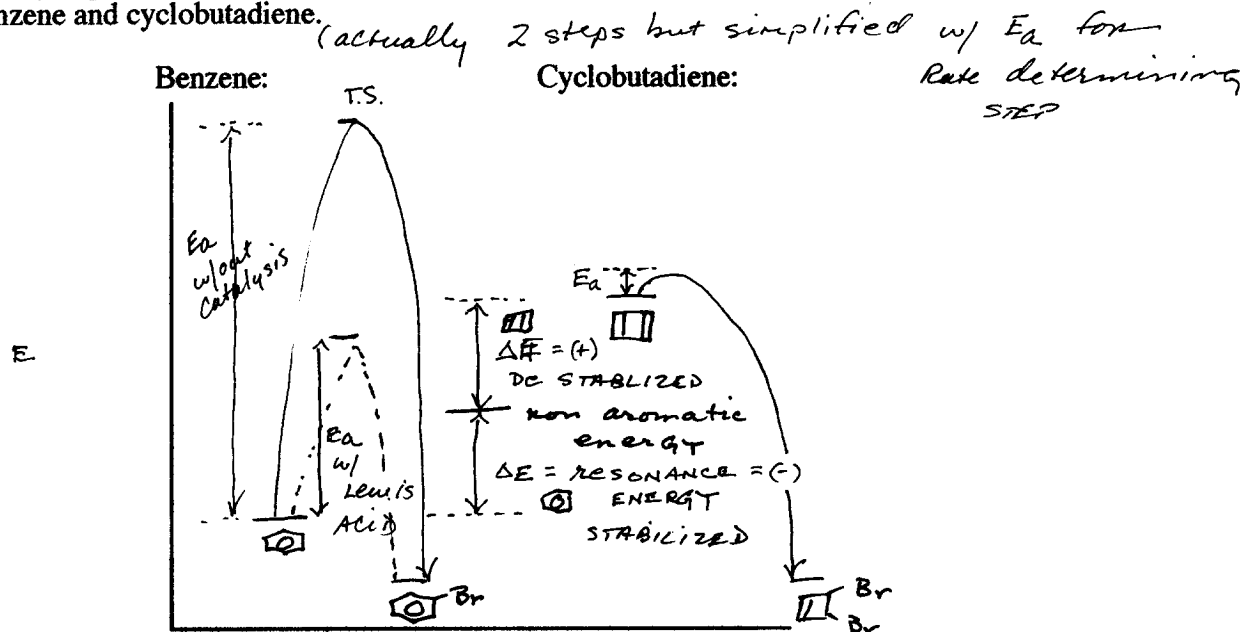 nzene and cyclobutadiene.
(actually 2 steps but simplified w/ Ea for
Rate determining
STEP
Benzene:
Cyclobutadiene:
T.S.
Ea
w/out
catalysis
E
Ea
w/
Lewis
ACID
Br
ΔE = (+)
DE STABLIZED
non aromatic
energy
ΔE = RESONANCE = (-)
ENERGY
STABILIZED
Ea
Br
Br